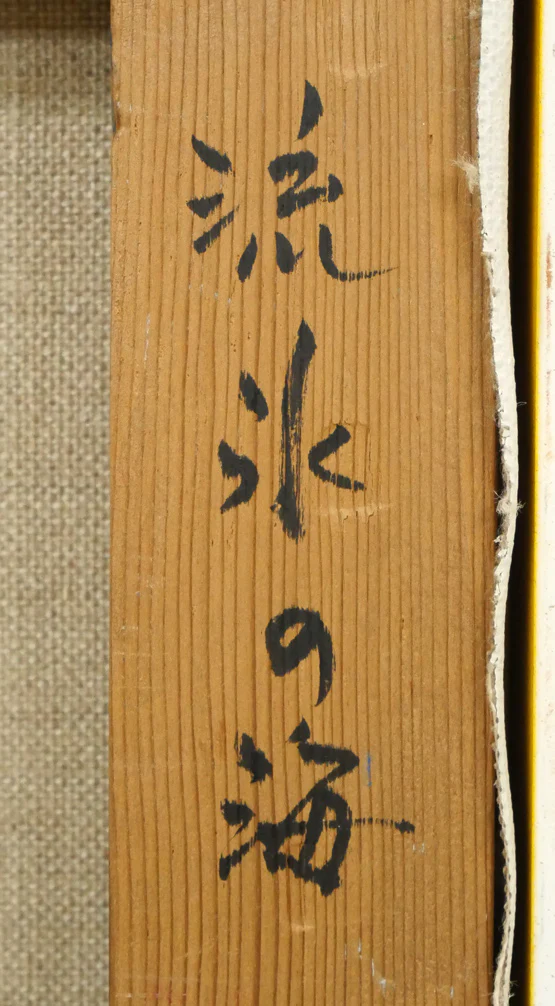 流氷の海